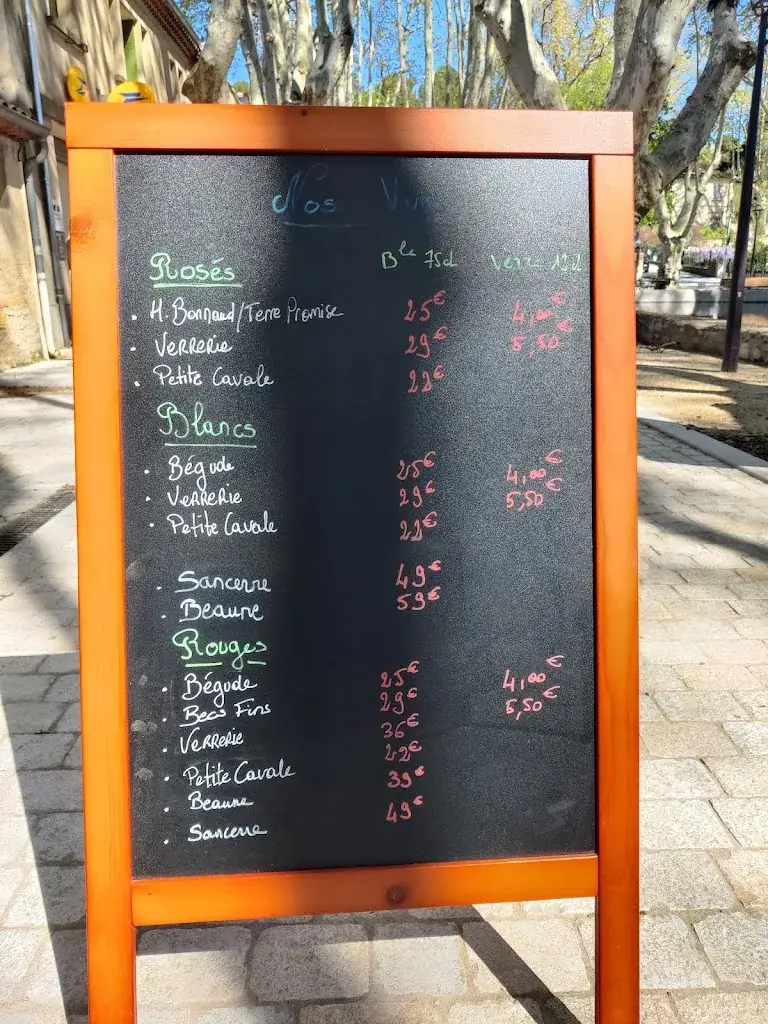 Nos Vins
Rosés Ble 75cl Verre 12cl
. H. Bonnaud/Terre Promise 25€ 4,00€
. VERRERIE 29€ 5,50€
. Petite Cavale 22€
Blancs
. Bégude 25€ 4,00€
. VERRERIE 29€ 5,50€
. Petite Cavale 22€
. Sancerre 49€
. Beaune 59€
Rouges
. Bégude 25€ 4,00€
. Becs Fins 29€ 5,50€
. VERRERIE 36€
. Petite Cavale 22€
. Beaune 39€
. Sancerre 49€